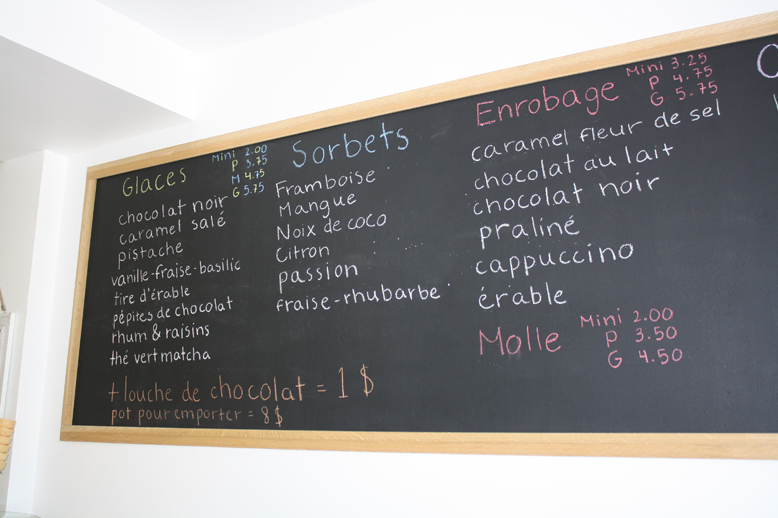 Glaces
Mini 2.00
P 3.75
M 4.75
G 5.75
chocolat noir
caramel salé
pistache
vanille-fraise-basilic
tire d'érable
pépites de chocolat
rhum & raisins
thé vert matcha
Sorbets
Framboise
Mangue
Noix de coco
Citron
passion
fraise-rhubarbe
Enrobage
Mini 3.25
P 4.75
G 5.75
caramel fleur de sel
chocolat au lait
chocolat noir
praliné
cappuccino
érable
Molle
Mini 2.00
P 3.50
G 4.50
+ louche de chocolat = 1 $
pot pour emporter = 8 $